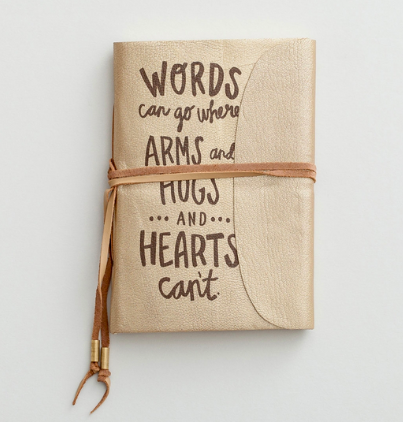 WORDS
can go where
ARMS and
HUGS
AND
HEARTS
can't.